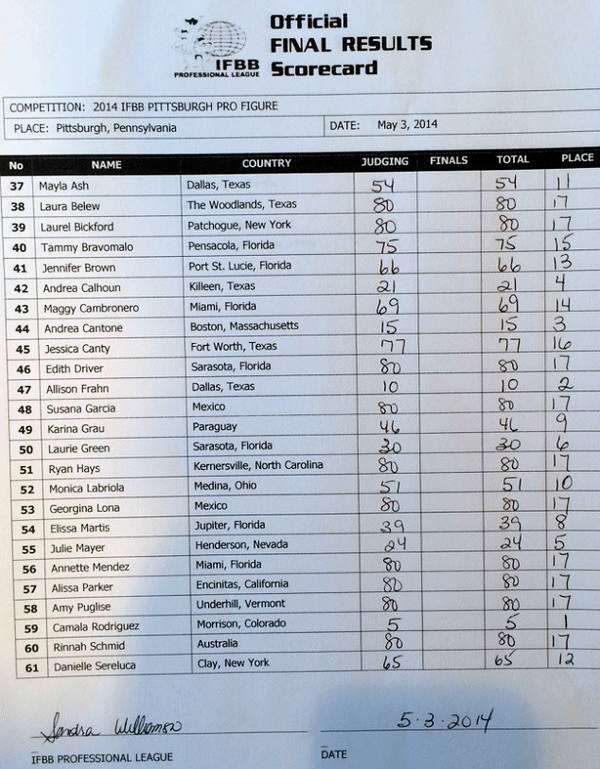 Official
FINAL RESULTS
Scorecard
IFBB
PROFESSIONAL LEAGUE
COMPETITION: 2014 IFBB PITTSBURGH PRO FIGURE
PLACE: Pittsburgh, Pennsylvania DATE: May 3, 2014
No NAME COUNTRY JUDGING FINALS TOTAL PLACE
37 Mayla Ash Dallas, Texas 54 54 11
38 Laura Belew The Woodlands, Texas 80 80 17
39 Laurel Bickford Patchogue, New York 80 80 17
40 Tammy Bravomalo Pensacola, Florida 75 75 15
41 Jennifer Brown Port St. Lucie, Florida 66 66 13
42 Andrea Calhoun Killeen, Texas 21 21 4
43 Maggy Cambronero Miami, Florida 69 69 14
44 Andrea Cantone Boston, Massachusetts 15 15 3
45 Jessica Canty Fort Worth, Texas 77 77 16
46 Edith Driver Sarasota, Florida 80 80 17
47 Allison Frahn Dallas, Texas 10 10 2
48 Susana Garcia Mexico 80 80 17
49 Karina Grau Paraguay 46 46 9
50 Laurie Green Sarasota, Florida 30 30 6
51 Ryan Hays Kernersville, North Carolina 80 80 17
52 Monica Labriola Medina, Ohio 51 51 10
53 Georgina Lona Mexico 80 80 17
54 Elissa Martis Jupiter, Florida 39 39 8
55 Julie Mayer Henderson, Nevada 24 24 5
56 Annette Mendez Miami, Florida 80 80 17
57 Alissa Parker Encinitas, California 80 80 17
58 Amy Puglise Underhill, Vermont 80 80 17
59 Camala Rodriguez Morrison, Colorado 5 5 1
60 Rinnah Schmid Australia 80 80 17
61 Danielle Sereluca Clay, New York 65 65 12
Sandra Williamson 5·3·2014
IFBB PROFESSIONAL LEAGUE DATE